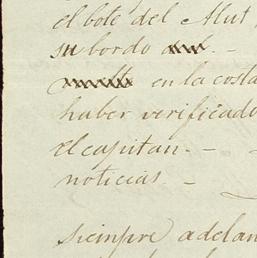 el bote del Alut
su bordo
en la costa
haber verificado
el capitan. -
noticias. -
siempre adelan